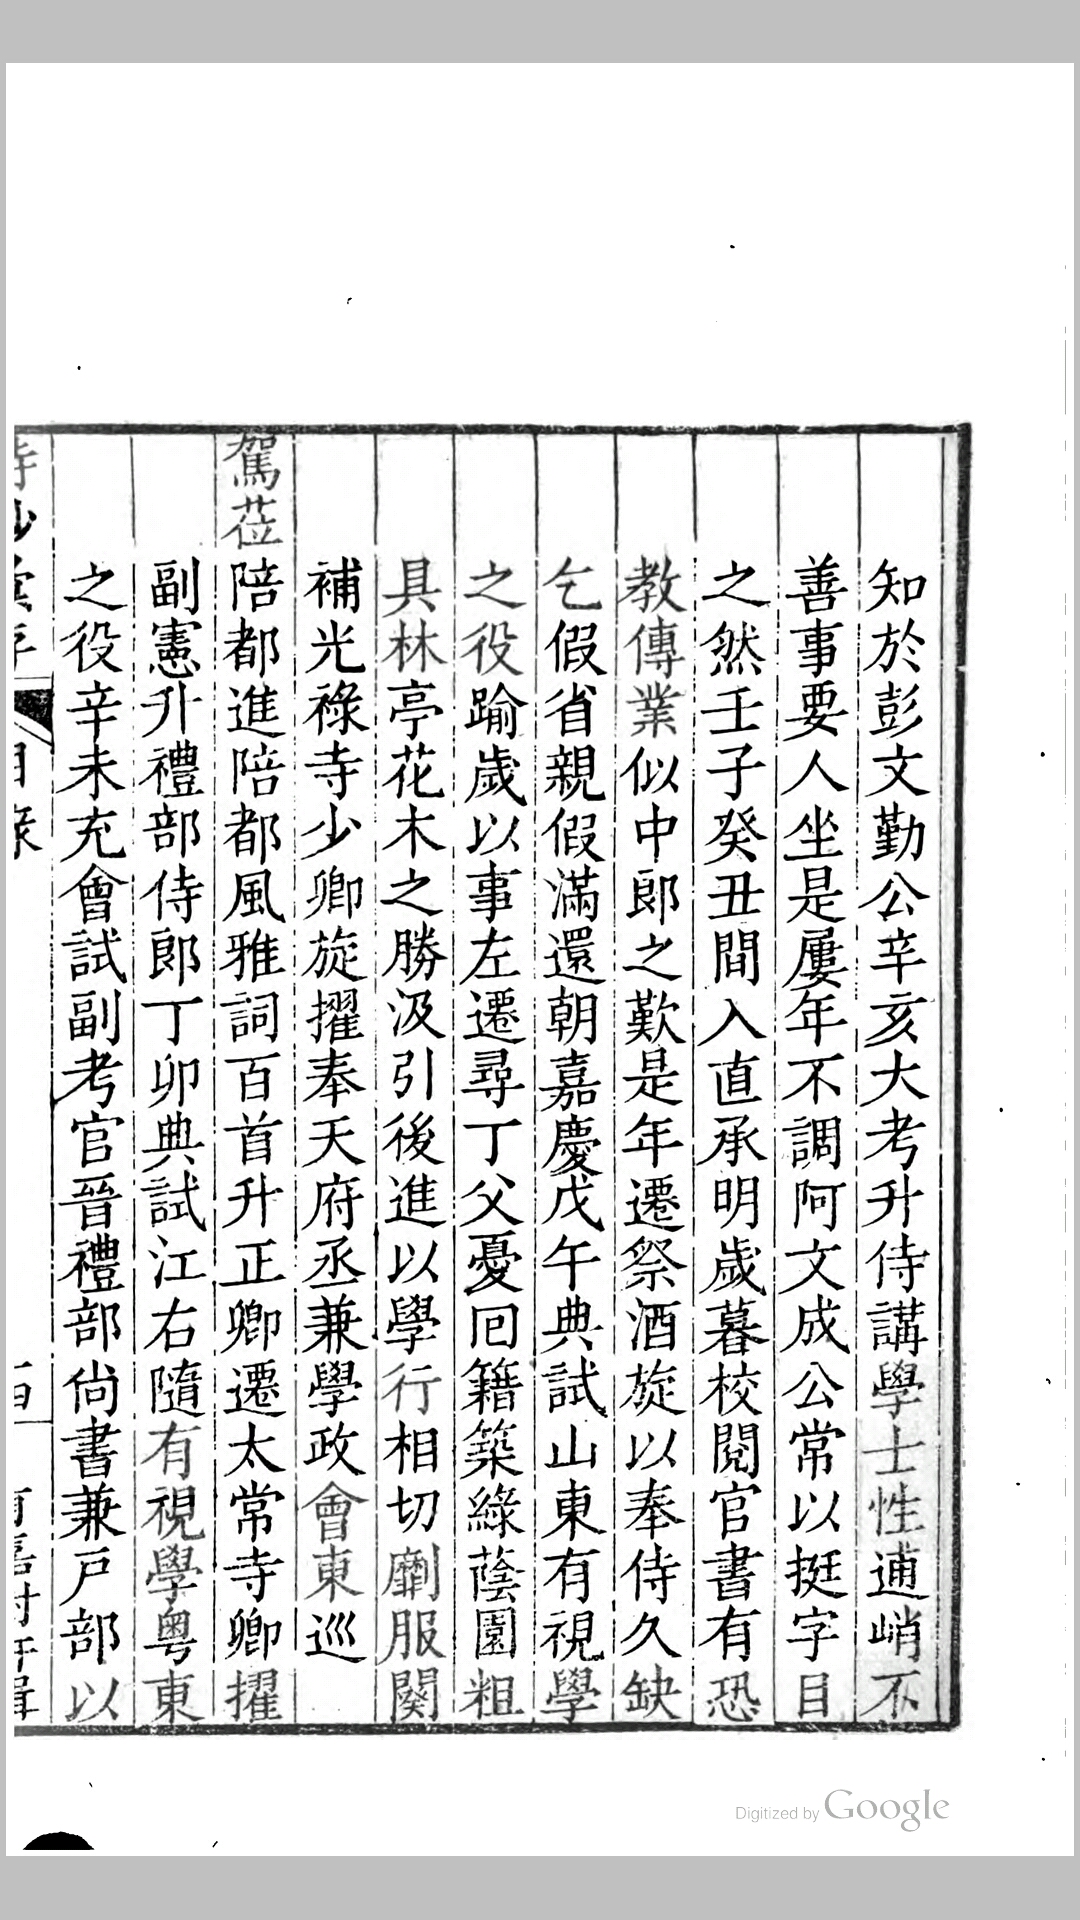 知於彭文勤公辛亥大考升侍講學士性逋峭不
善事要人坐是屢年不調阿文成公常以挺字目
之然壬子癸丑間入直承明歲暮校閱官書有恐
教傳業似中郎之歎是年遷祭酒旋以奉侍久缺
乞假省親假滿還朝嘉慶戊午典試山東有視學
之役踰歲以事左遷尋丁父憂回籍築綠蔭園粗
具林亭花木之勝汲引後進以學行相切劘服闋
補光祿寺少卿旋擢奉天府丞兼學政會東巡
駕莅陪都進陪都風雅詞百首升正卿遷太常寺卿擢
副憲升禮部侍郎丁卯典試江右隨有視學粵東
之役辛未充會試副考官晉禮部尙書兼戸部以
目錄
Digitized by Google